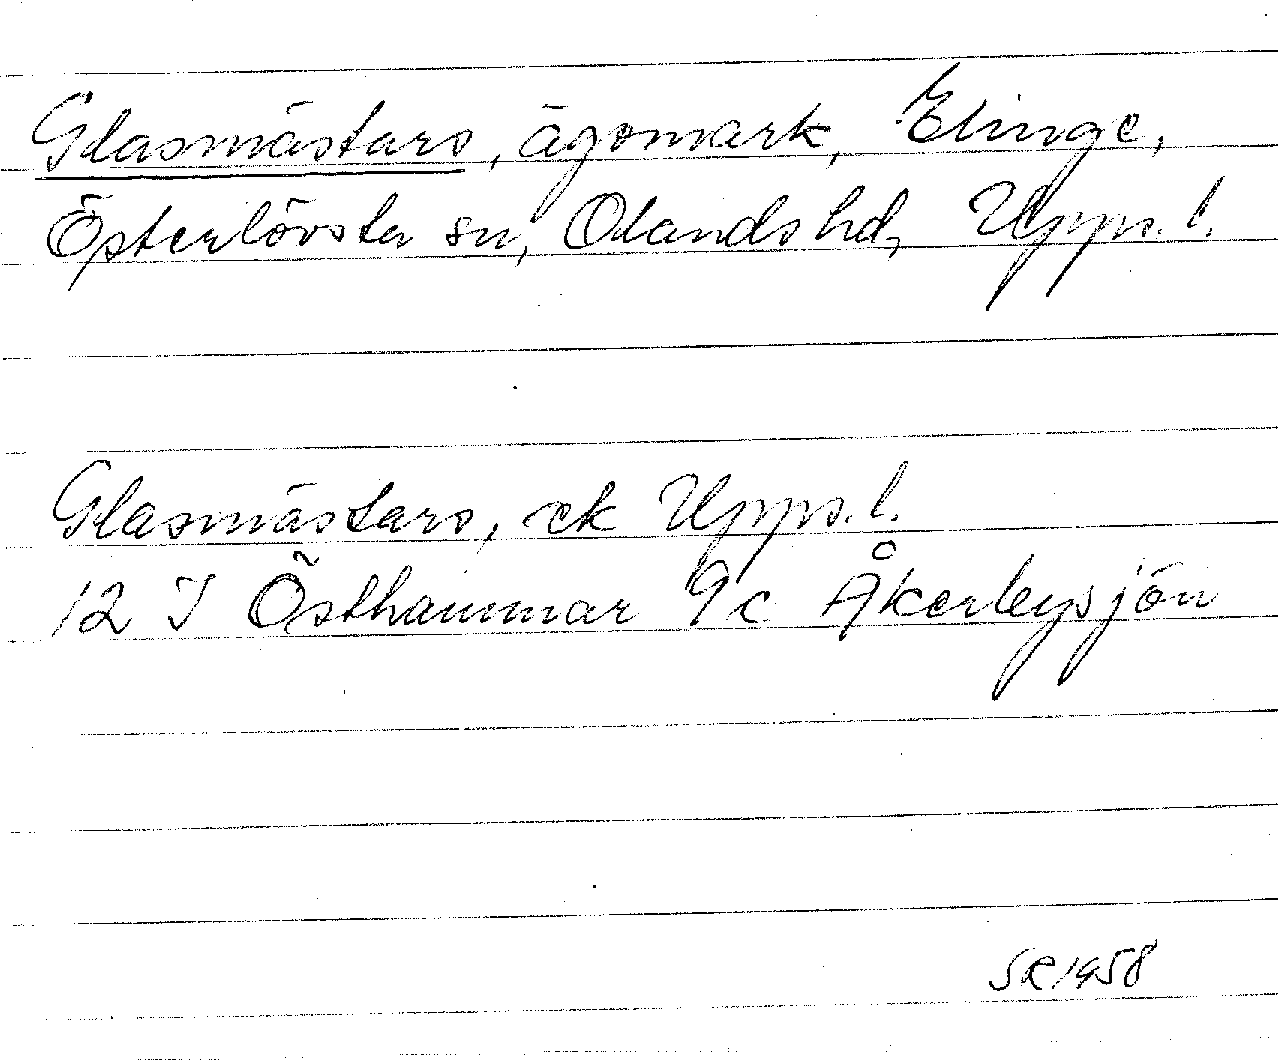 Glasmästars, ägomark, Elinge,
Österlövsta sn, Olands hd, Upps. l.
Glasmästars, ek Upps. l.
12 I Östhammar 9c Åkerbysjön
SR 1958